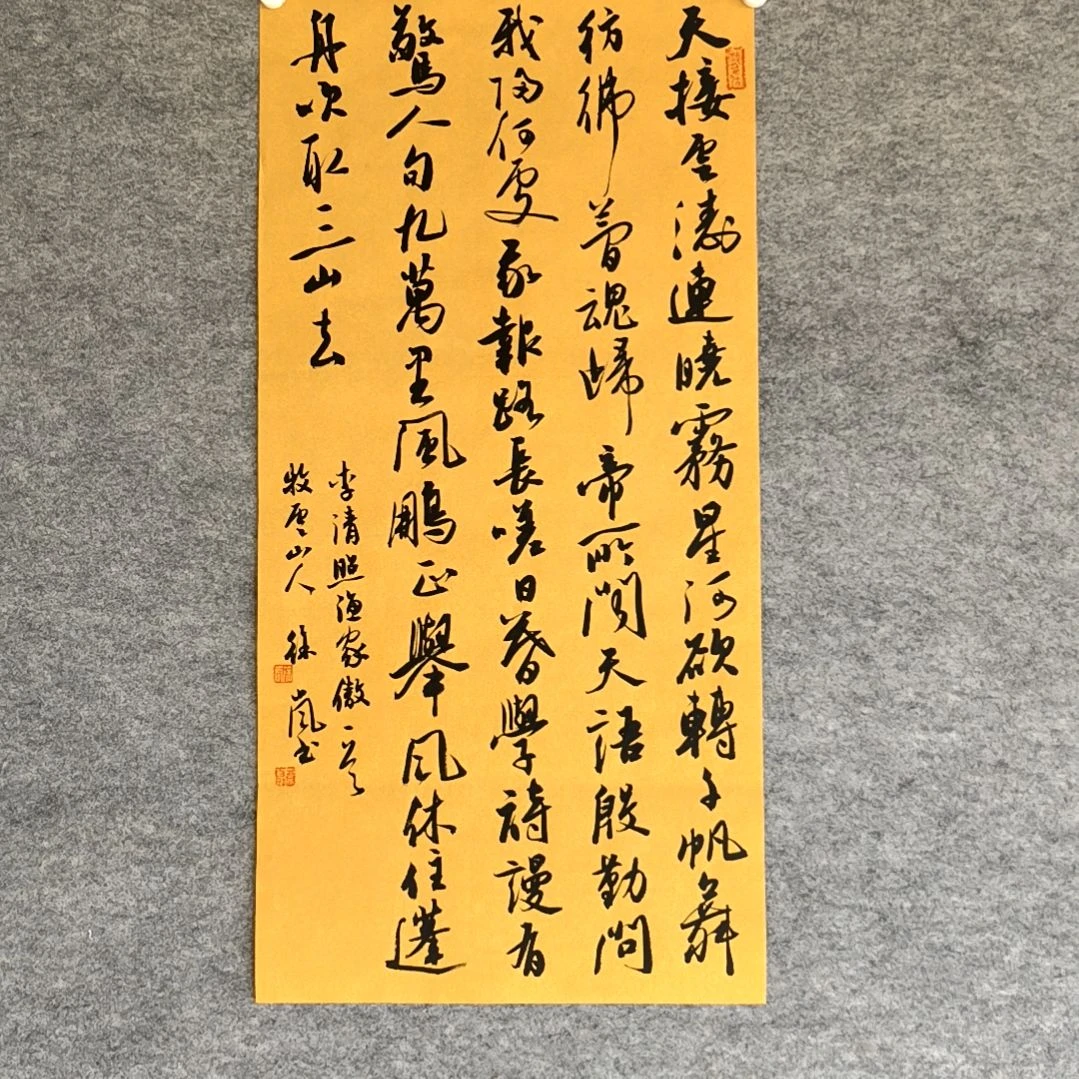 天接雲濤連曉霧星河欲轉千帆舞
彷彿夢魂歸帝所聞天語殷勤問
我歸何處我報路長嗟日暮學詩謾有
驚人句九萬里風鵬正舉風休住蓬
舟吹取三山去
李清照漁家傲一首
牧雲山人 徐嵐書